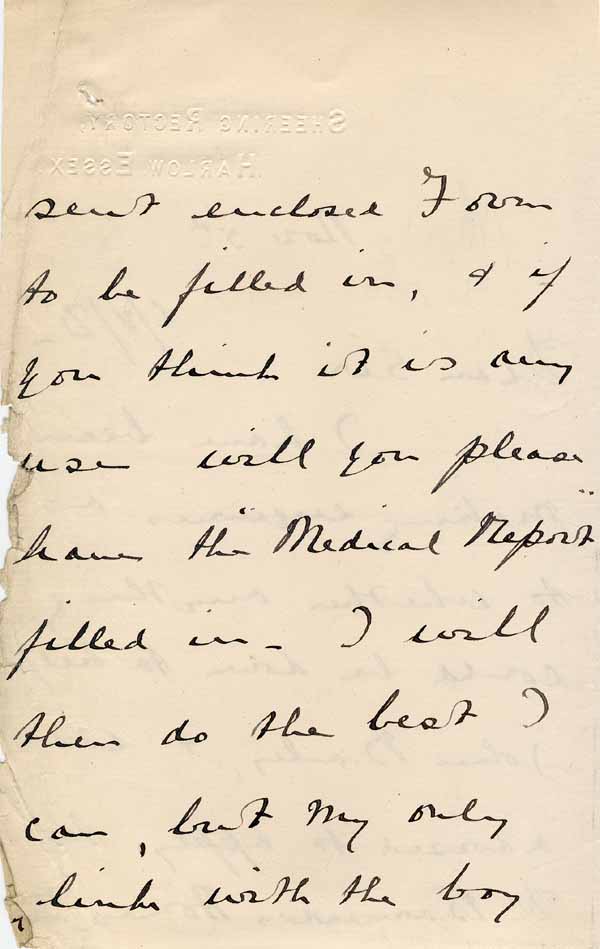 SHEERING RECTORY,
HARLOW ESSEX.
sent enclosed Form
to be filled in, & if
you think it is any
use will you please
have the "Medical Report"
filled in - I will
then do the best I
can, but my only
link with the boy